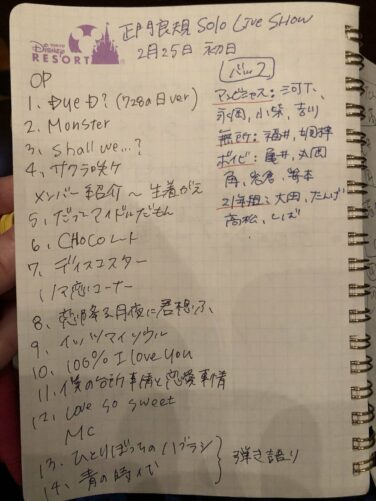 TOKYO
Disney
RESORT
正門良規 Solo LIVE SHOW
2月25日 初日
OP
1. Bye D? (728の日ver)
2. Monster
3. shall we...?
4. サクラ咲ケ
メンバー紹介 〜 生着がえ
5. だってアイドルだもん
6. CHOCOレート
7. ディスコスター
リア恋コーナー
8. 恋降る月夜に君想ふ
9. イッツマイソウル
10. 100% I love you
11. 僕の台所事情と恋愛事情
12. Love so sweet
MC
13. ひとりぼっちのハブラシ
14. 青の時代
弾き語り
バック
アンビシャス: 河下、
永岡, 小柴, 吉川
無所: 福井,
ボイビ: 亀井, 丸岡
角, 岩倉,
21年組: 大内, たんげ
高松, しば